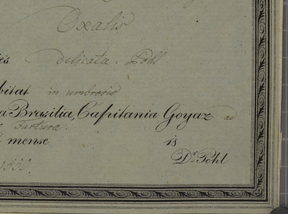 Oxalis
ies delicata. Pohl
bitat in umbrosis
a Brasilia, Capitania Goyaz ad
mense is
Dr. Pohl